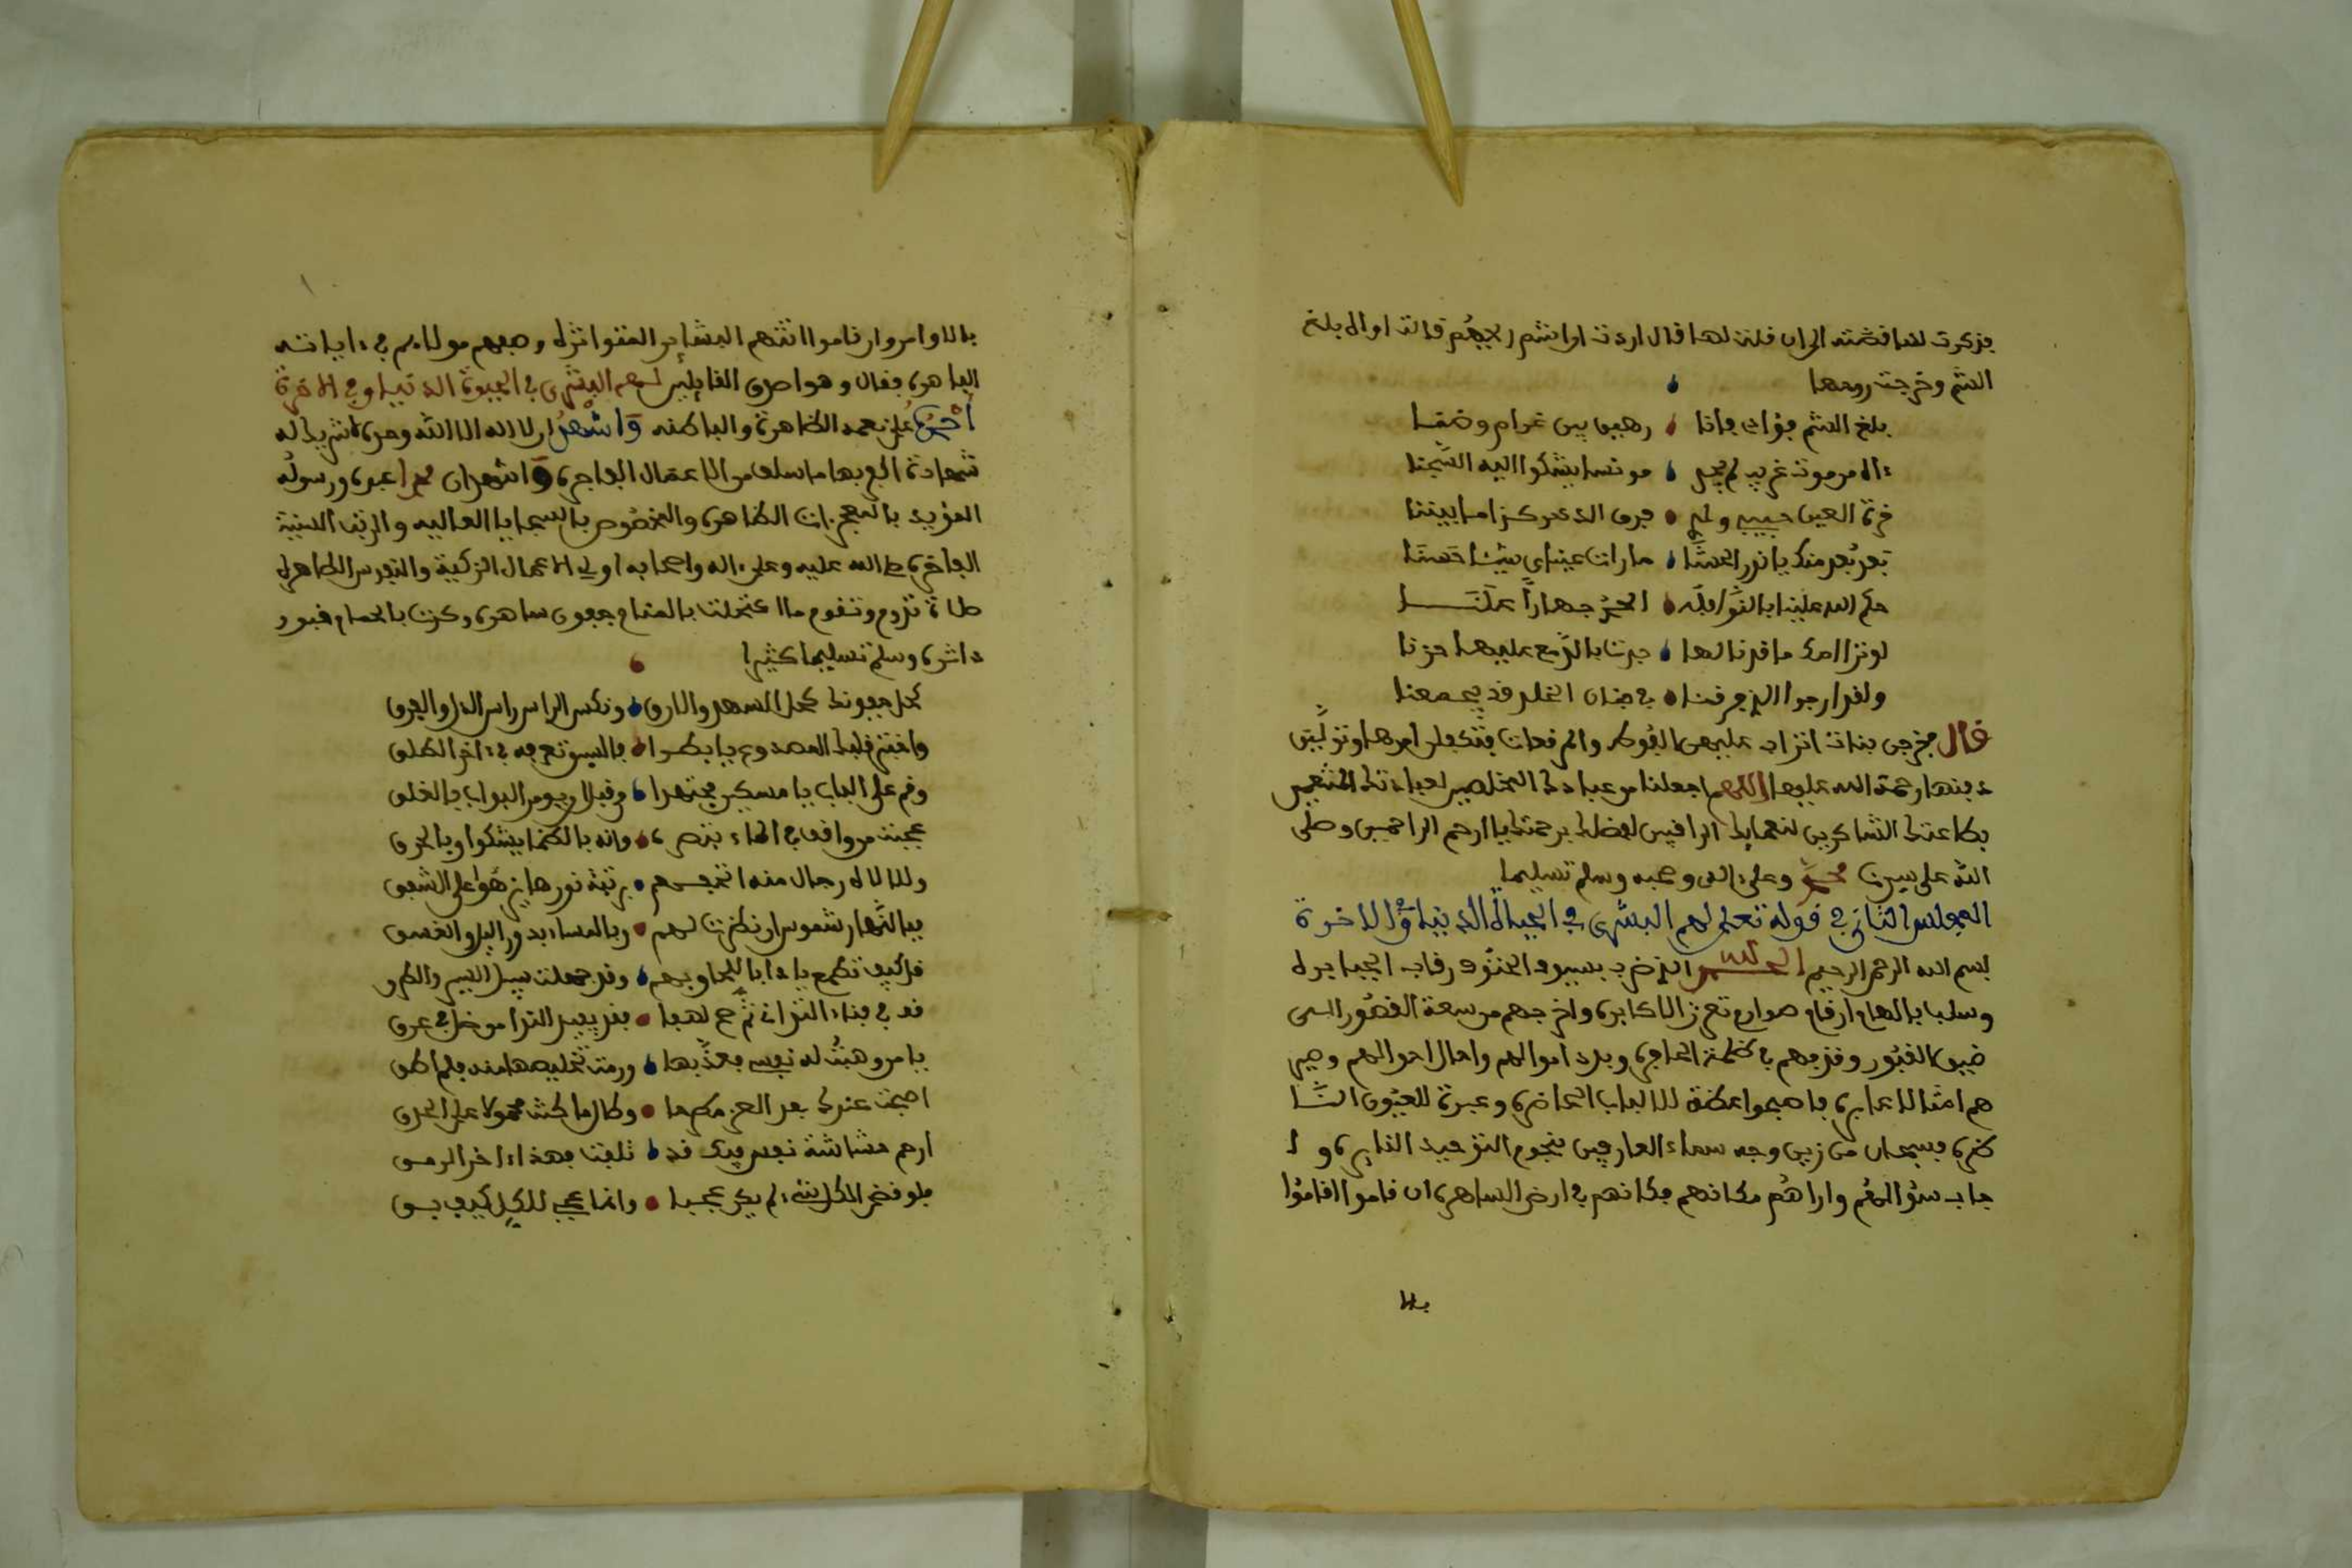 فذكرت لها قصته الى ان قلت لها قال اردت اوانتم احبكم قالت اواه بلغ
السم وخرجت روحها
بلغ السم فؤادي فانا رهين بين غرام وضنا
ءاه من موت غريب لم يجد مونسا يشكوا اليه الشجنا
قرة العين حبيبي ولدي فرق الدهر كذا ما بيننا
بعد بعد منك يا نور الحشا ما رات عيناي شيئا حسنا
حكم الله علينا بالنوى الحد جهارا علنا
لو ترا امك ما قد نالها جدت بالدمع عليها حزنا
ولقد ارجوا الذي فرقنا في جنان الخلد قد يجمعنا
قال فخرجن بنات اتراب عليهن الفوط والمرقعات فتكفلن امرها وتولين
دفنها رحمة الله عليها اللهم اجعلنا من عبادك المخلصين لعبادتك المتنعمين
بطاعتك الشاكرين لنعمايك الراقبين لفضلك برحمتك يا ارحم الراحمين وصلى
الله على سيدنا محمد وعلى ءاله وصحبه وسلم تسليما
المجلس الثاني في قوله تعلى لهم البشرى في الحياة الدنيا وفي الاخرة
بسم الله الرحمن الرحيم الحمد لله الذي ضرب بسيوف الحتوف رقاب الجبابرة
وسلبا بالهام ارقام صوارم تعزز الاكابرة واخرجهم من سعة القصور الى
ضيق القبور وقذفهم في ظلمة الحافرة وبدد اموالهم واحال احوالهم وصير
هم امثالا عابرة فاصبحوا عظة للالباب الحاضرة وعبرة للعيون النا
ظرة فسبحان من زين وجه سماء العارفين بنجوم التوحيد النايرة و ا
جاب سؤالهم واراهم مكانهم فكانهم في ارض الساهرة ان قاموا اقاموا
بالا
بالاوامر وان ناموا اتتهم البشاير المتواترة وصفهم مولاهم في ءاياته
الباهرة فقال وهو اصدق القايلين لهم البشرى في الحيوة الدنيا وفي الاخرة
احمده على نعمه الظاهرة والباطنه واشهد ان لا اله الا الله وحده لا شريك له
شهادة امح بها ما سلف من الاعمال الفاجرة واشهد ان محمدا عبده ورسوله
المؤيد بالمعجزات الظاهرة والمخصوص بالسجايا العاليه والرتب السنية
الفاخرة صلى الله عليه وعلى ءاله واصحابه اولي الاعمال الزكية والنفوس الطاهرة
صلاة تدوم وتقوم ما اكتحلت بالمنام جفون ساهرة وكرت بالحمام قبور
داثرة وسلم تسليما كثيرا
كحل جفونك كحل السهد والارق ونكس الراس راس الذل والفرق
وافتح قلبك المصدوع يا بطرا فالسوق تعرفه في ءاخر الطلق
وقم على الباب يا مسكين مجتهدا من قبل ان يوم البواب بالغلق
عجبت من واقف في الماء تبصره وانه بالظما يشكوا وبالحرق
ولله لاله رجال منه اتحفهم برتبة نورها يزهوا على الشفق
فبالنهار شموس ان نظرت لهم وبالمساء بدور الليل والغسق
فكيف تطمع يا دا باللحاق بهم وقد جهلت سبيل السير والطرق
قف في فناء التواني ثم صح لهفا فقد يفيد الندا من ضل في عرق
يا من وهبت له نفسي فعذبها ورمت تخليصها منه فلم اطق
اصبحت عندك بعد العز مكرها وطال ما كنت محمولا على الحدق
ارحم حشاشة نفس فيك قد تلفت فهذا ءاخر الرمق
فلو قضى الكل منه لم يكن عجبا وانما عجبي للكل كيف بقي